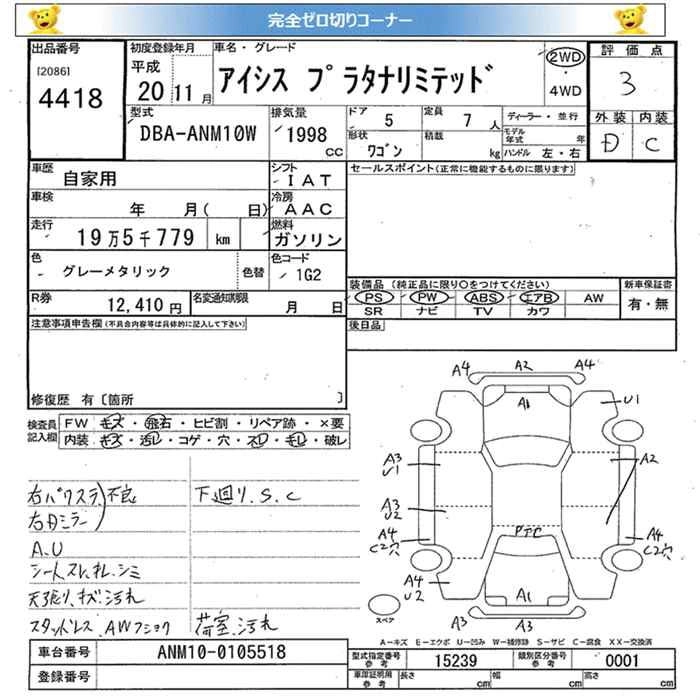 完全ゼロ切りコーナー
出品番号
[2086]
4418
初度登録年月
平成
20 11月
車名・グレード
アイシス プラタナリミテッド
2WD
・
4WD
評価点
3
外装 内装
D C
型式
DBA-ANM10W
排気量
1998
cc
ドア
5
定員
7 人
形状
ワゴン
積載
kg
ディーラー・並行
モデル年式
年
ハンドル 左・右
車歴
自家用
シフト
IAT
車検
年 月( 日)
冷房
AAC
走行
19万5千779 km
燃料
ガソリン
色
グレーメタリック
色替
色コード
1G2
R券
12,410 円
名変通知期限
月 日
セールスポイント(正常に機能するものに限ります)
装備品 (純正品に限り○をつけてください)
PS PW ABS エアB AW
SR ナビ TV カワ
新車保証書
有・無
後日品
注意事項申告欄(不具合内容等は具体的に記入して下さい)
修復歴 有〔箇所 〕
検査員記入欄
FW キズ・飛石・ヒビ割・リペア跡・×要
内装 キズ・汚レ・コゲ・穴・スレ・キレ・破レ
右パワステ 不良
右Dミラー
A.U
シートスレ、キレ、シミ
天張り、キズ、汚れ
スタッドレス、AWフショク
下廻り.S.C
荷室、汚れ
A4 A2 A4
A1
U1
A3
U1
A2
A3
U2
A4
C2穴
PtC
A4
C2穴
A4
U2
A1
A3 A3
スペア
A−キズ E−エクボ U−凹み W−補修跡 S−サビ C−腐食 XX−交換済
車台番号
ANM10-0105518
登録番号
型式指定番号
参考
15239
類別区分番号
参考
0001
車庫証明用
参考
長さ cm
幅 cm
高さ cm